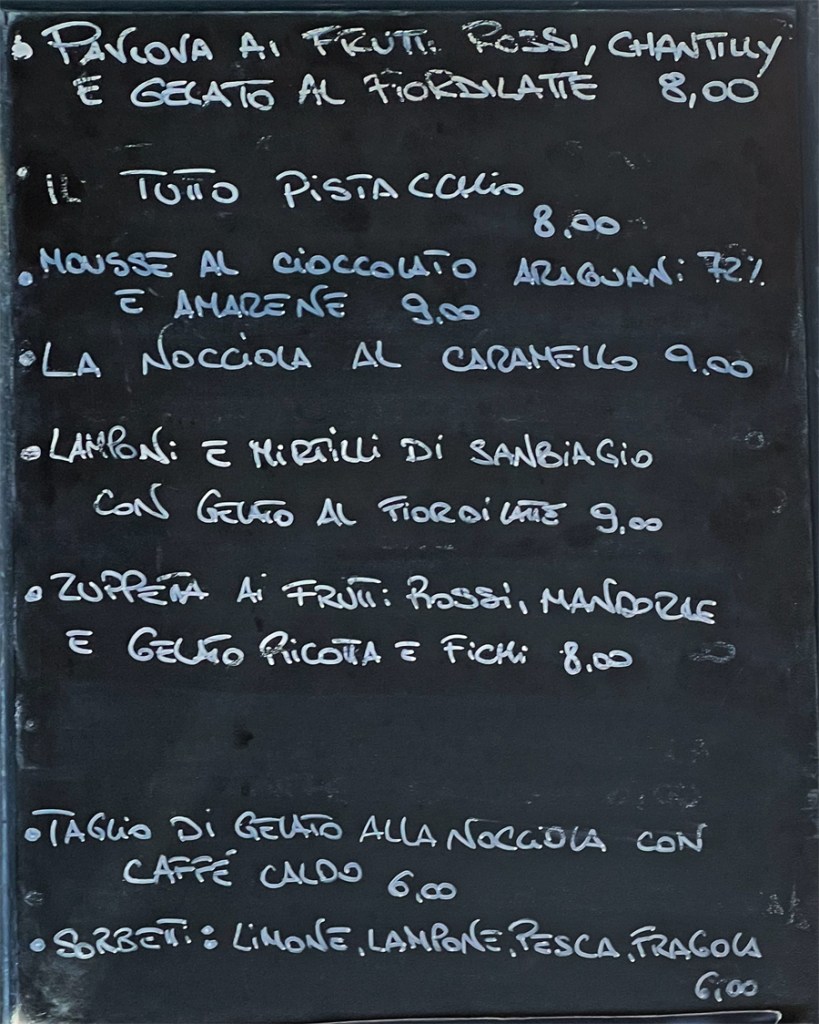 • PAVLOVA AI FRUTTI ROSSI, CHANTILLY
E GELATO AL FIORDILATTE 8,00
• IL TUTTO PISTACCHIO
8,00
• MOUSSE AL CIOCCOLATO ARAGUANI 72%
E AMARENE 9,00
• LA NOCCIOLA AL CARAMELLO 9,00
• LAMPONI E MIRTILLI DI SANBIAGIO
CON GELATO AL FIORDILATTE 9,00
• ZUPPETTA AI FRUTTI ROSSI, MANDORLE
E GELATO RICOTTA E FICHI 8,00
• TAGLIO DI GELATO ALLA NOCCIOLA CON
CAFFÈ CALDO 6,00
• SORBETTI: LIMONE, LAMPONE, PESCA, FRAGOLA
6,00